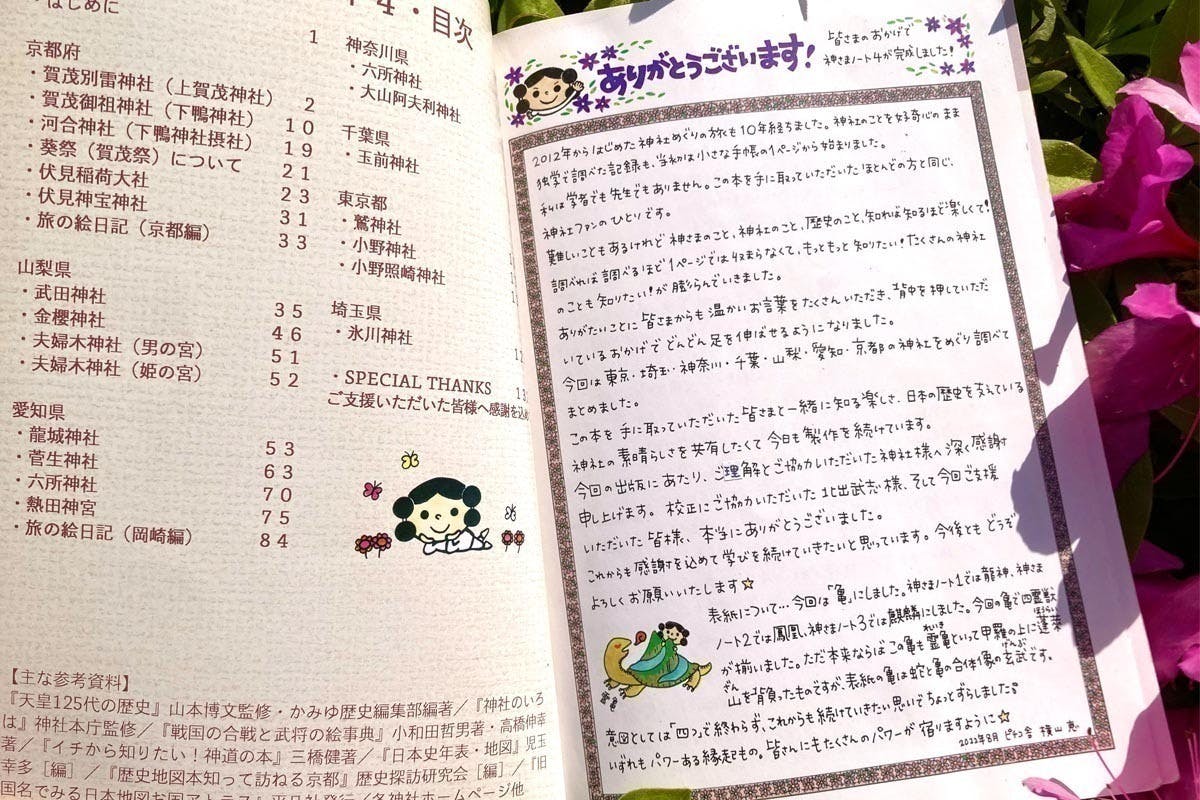 はじめに
1
4・目次
京都府
・賀茂別雷神社（上賀茂神社） 2
・賀茂御祖神社（下鴨神社） 10
・河合神社（下鴨神社摂社） 19
・葵祭（賀茂祭）について 21
・伏見稲荷大社 23
・伏見神宝神社 31
・旅の絵日記（京都編） 33
山梨県
・武田神社 35
・金櫻神社 46
・夫婦木神社（男の宮） 51
・夫婦木神社（姫の宮） 52
愛知県
・龍城神社 53
・菅生神社 63
・六所神社 70
・熱田神宮 75
・旅の絵日記（岡崎編） 84
神奈川県
・六所神社
・大山阿夫利神社
千葉県
・玉前神社
東京都
・鷲神社
・小野神社
・小野照崎神社
埼玉県
・氷川神社
・SPECIAL THANKS
ご支援いただいた皆様へ感謝を込め
【主な参考資料】
『天皇125代の歴史』山本博文監修・かみゆ歴史編集部編著／『神社のいろ
は』神社本庁監修／『戦国の合戦と武将の絵事典』小和田哲男著・高橋伸幸
著／『イチから知りたい！神道の本』三橋健著／『日本史年表・地図』児玉
幸多［編］／『歴史地図本知って訪ねる京都』歴史探訪研究会［編］／『旧
国名でみる日本地図お国アトラス』平凡社発行／各神社ホームページ他
ありがとうございます!
皆さまのおかげで
神さまノート4が完成しました!
2012年からはじめた神社めぐりの旅も10年経ちました。神社のことを好奇心のまま
独学で調べた記録も、当初は小さな手帳の1ページから始まりました。
私は学者でも先生でもありません。この本を手に取っていただいたほとんどの方と同じ、
神社ファンのひとりです。
難しいこともあるけれど 神さまのこと、神社のこと、歴史のこと、知れば知るほど楽しくて!
調べれば調べるほど1ページでは収まらなくて、もっともっと知りたい!たくさんの神社
のことも知りたい!が膨らんでいきました。
ありがたいことに皆さまからも温かいお言葉をたくさんいただき、背中を押していただ
いているおかげで どんどん足を伸ばせるようになりました。
今回は東京・埼玉・神奈川・千葉・山梨・愛知・京都の神社をめぐり調べて
まとめました。
この本を手に取っていただいた皆さまと一緒に知る楽しさ、日本の歴史を支えている
神社の素晴らしさを共有したくて今日も製作を続けています。
今回の出版にあたり、ご理解とご協力いただいた神社様へ深く感謝
申し上げます。校正にご協力いただいた北出武志様、そして今回ご支援
いただいた皆様、本当にありがとうございました。
これからも感謝を込めて学びを続けていきたいと思っています。今後ともどうぞ
よろしくお願いいたします☆
表紙について…今回は「亀」にしました。神さまノート1では龍神、神さま
ノート2では鳳凰、神さまノート3では麒麟にしました。今回の亀で四霊獣
が揃いました。ただ本来ならばこの亀も霊亀といって甲羅の上に蓬莱
山を背負ったものですが、表紙の亀は蛇と亀の合体像の玄武です。
意図としては「四つ」で終わらず、これからも続けていきたい思いでちょっとずらしました。
いずれもパワーある縁起もの。皆さんにもたくさんのパワーが宿りますように☆
2022年8月 ピチコ舎 横山 恵